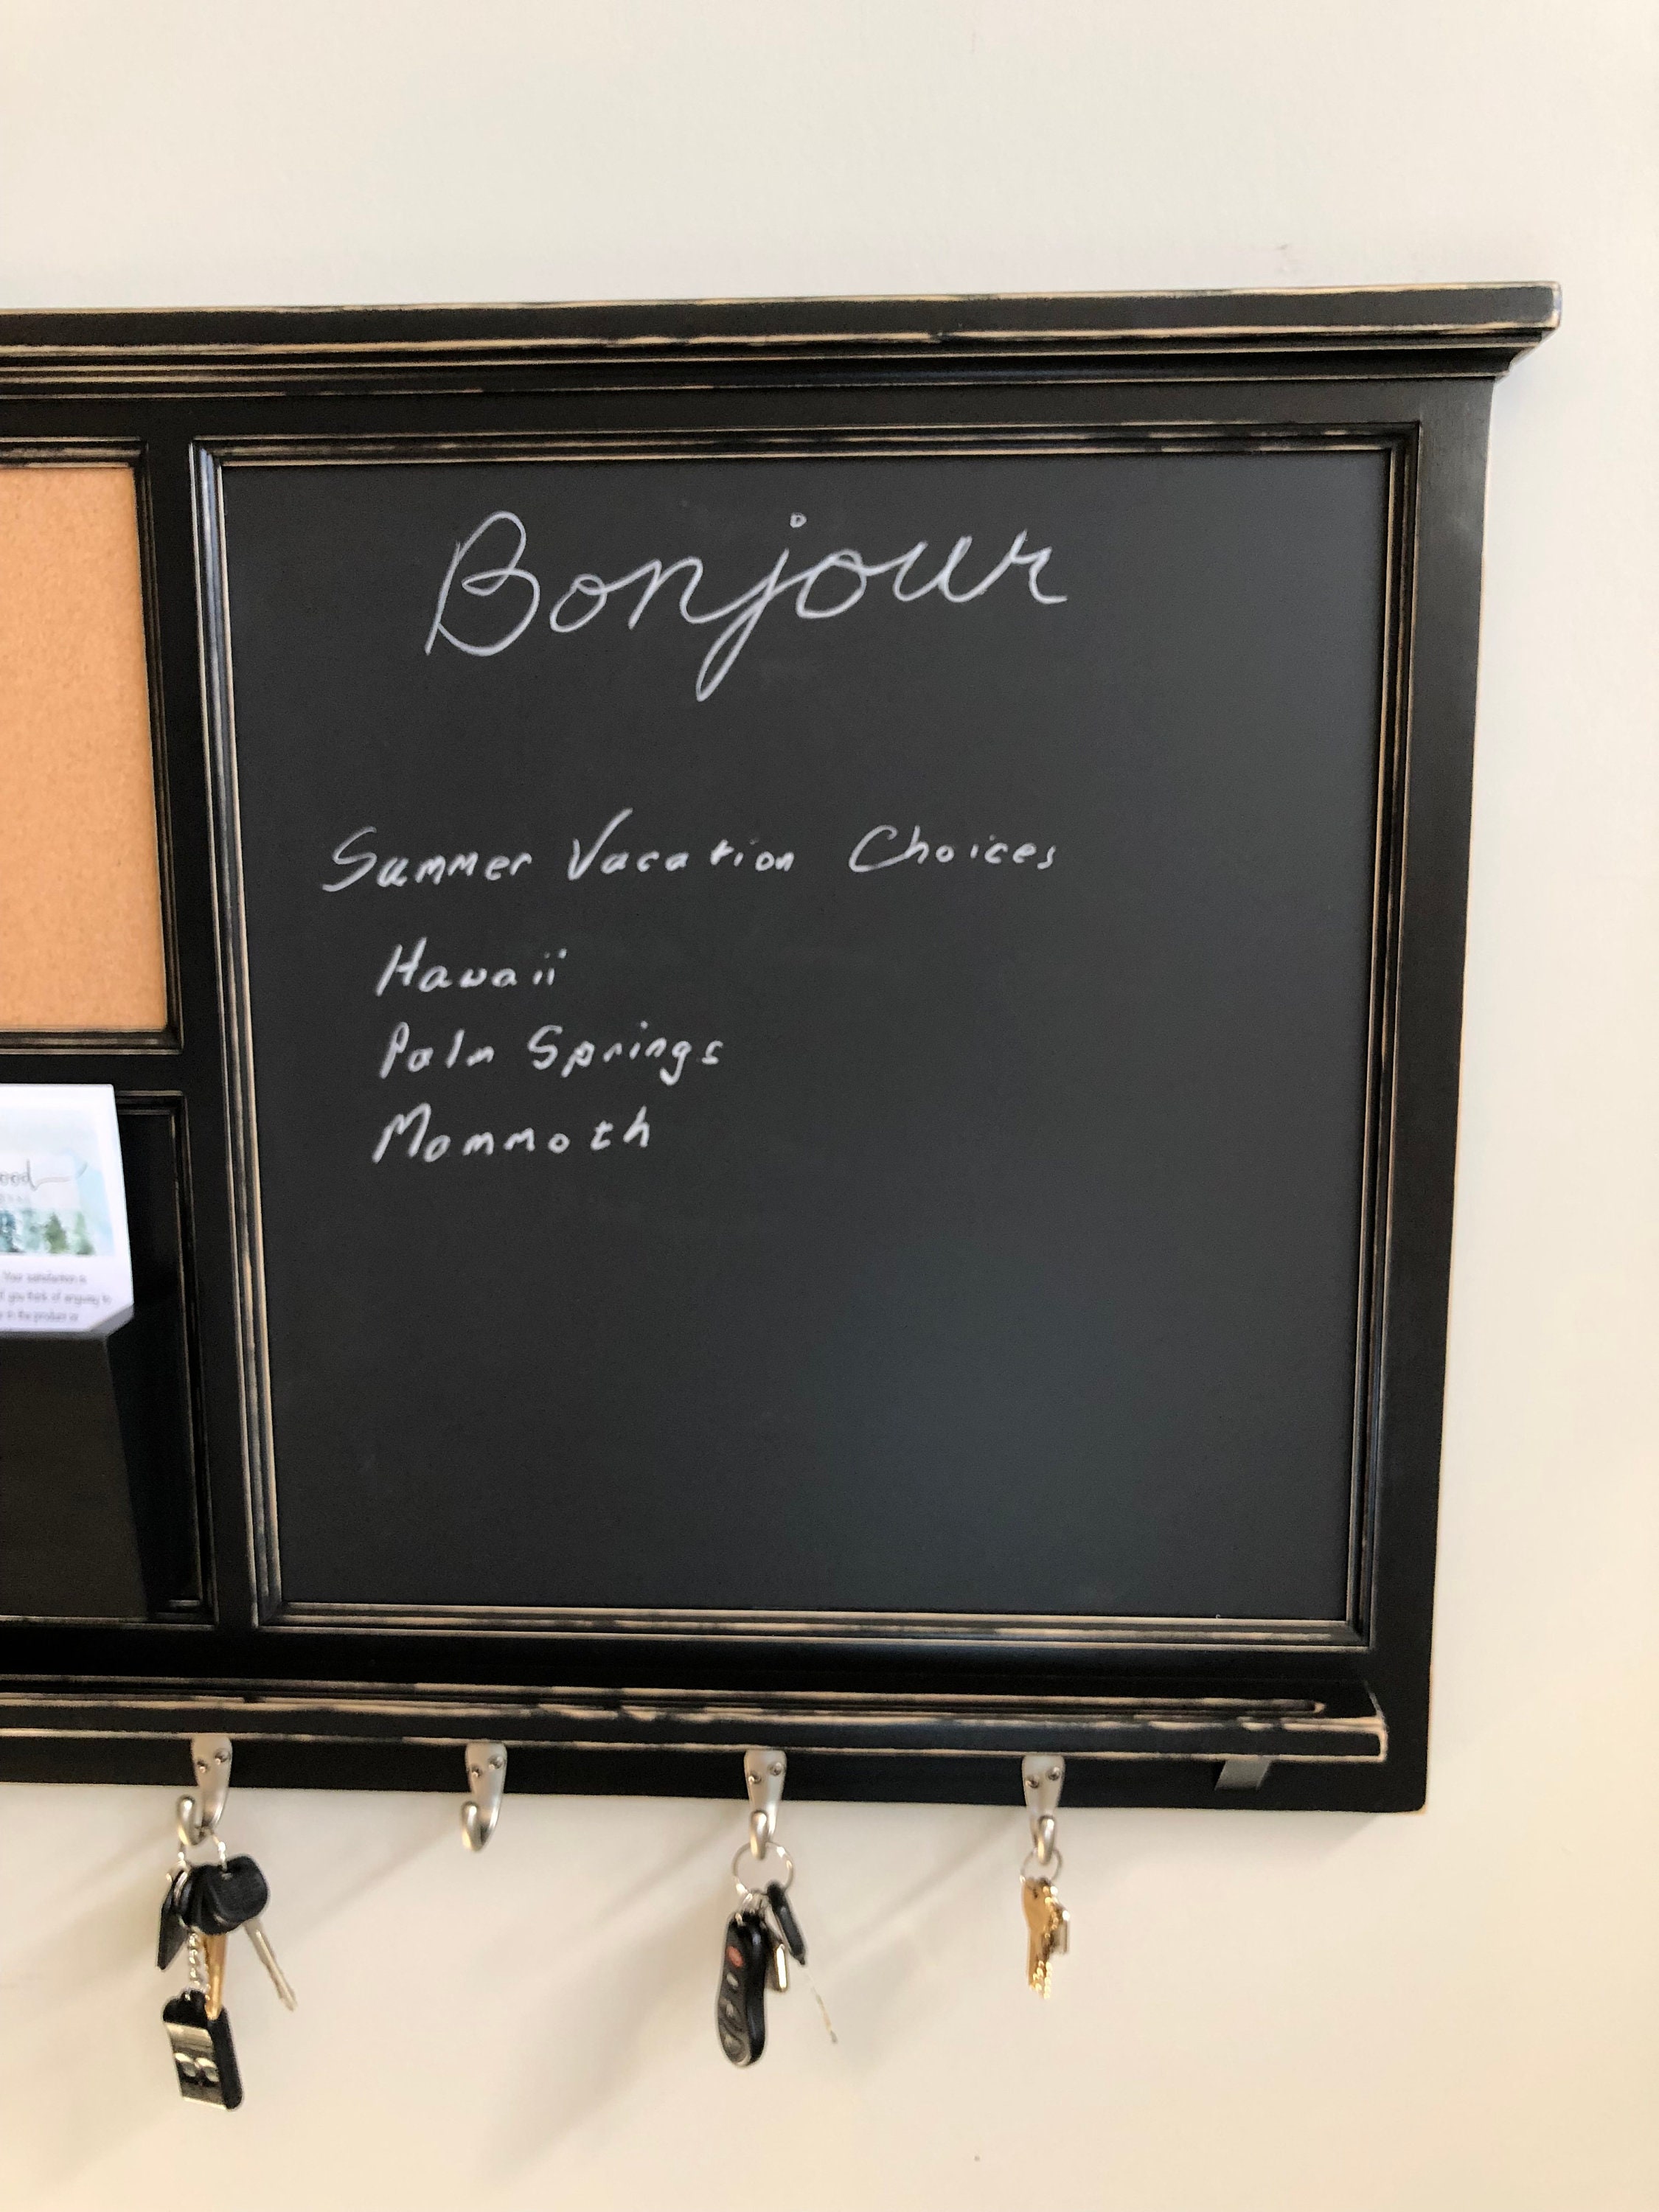 Bonjour
Summer Vacation Choices
Hawaii
Palm Springs
Mammoth
ood
Your satisfaction is
if you think of anything to
in the product or